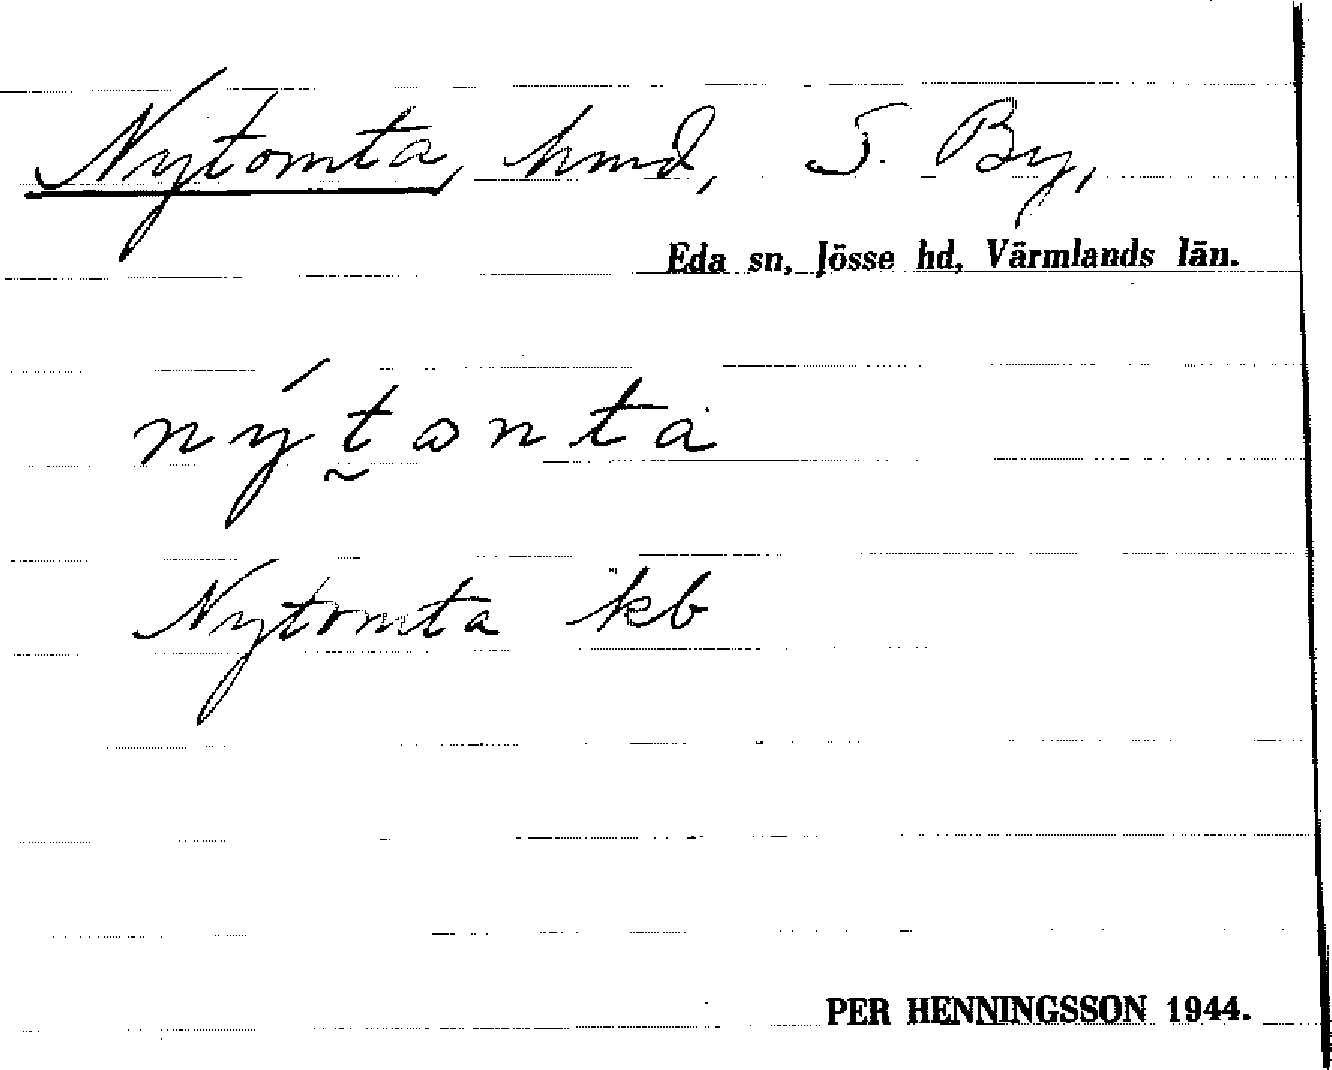 Nytomta, hmd, S. By,
Eda sn, Jösse hd, Värmlands län.
nýt̰ɷnta
Nytomta kb
PER HENNINGSSON 1944.